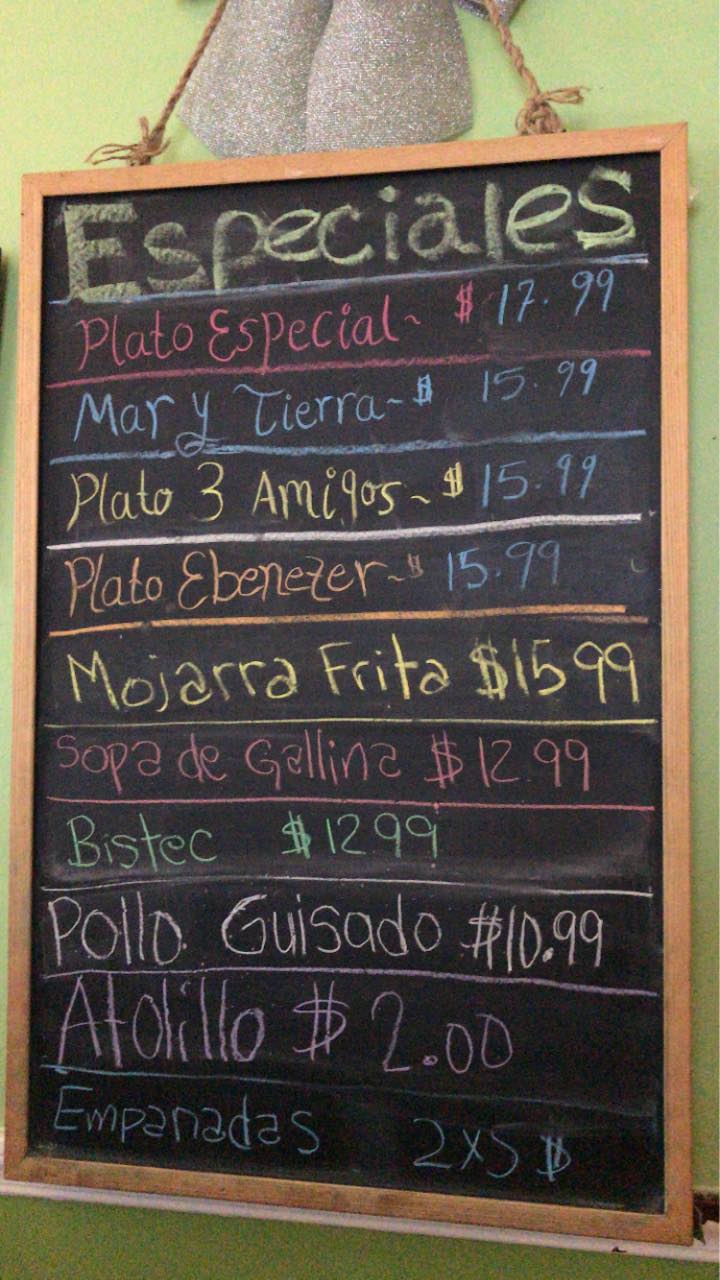 Especiales
Plato Especial~ $ 17.99
Mar y Tierra~$ 15.99
Plato 3 Amigos~$ 15.99
Plato Ebenezer~$ 15.99
Mojarra Frita $15 99
Sopa de Gallina $12.99
Bistec $12 99
Pollo Guisado $10.99
Atolillo $ 2.00
Empanadas 2x5 $